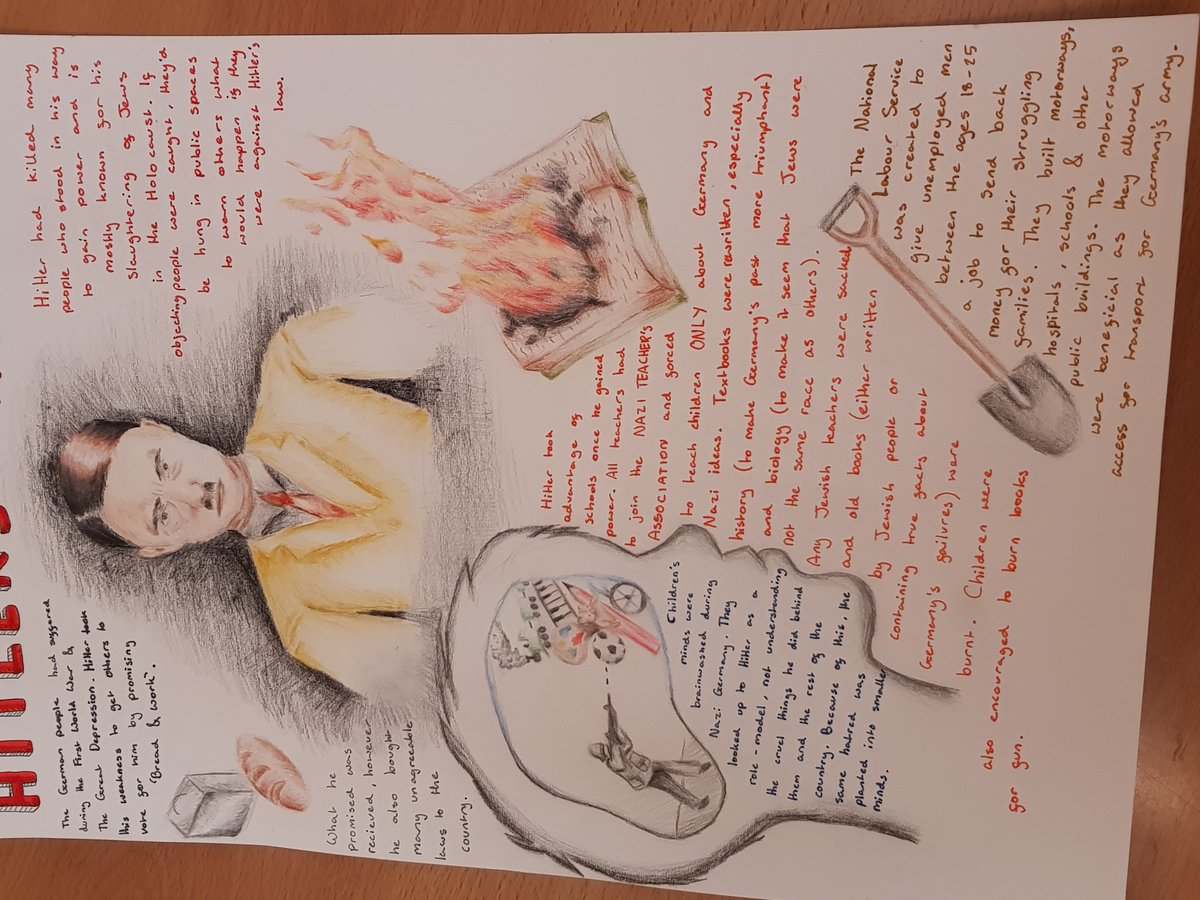 HITLER'S
The German people had suffered
during the First World War &
The Great Depression. Hitler took
this weakness to get others to
vote for him by promising
"Bread & Work".
Hitler had killed many
people who stood in his way
to gain power and is
mostly known for his
slaughtering of Jews
in the Holocaust. If
objecting people were caught, they'd
be hung in public spaces
to warn others what
would happen if they
were against Hitler's
law.
What he
promised was
recieved, however
he also bought
many unagreeable
laws to the
country.
Hitler took
advantage of
schools once he gained
power. All teachers had
to join the NAZI TEACHER'S
ASSOCIATION and forced
to teach children ONLY about Germany and
Nazi ideas. Textbooks were rewritten, especially
history (to make Germany's past more triumphant)
and biology (to make it seem that Jews were
not the same race as others).
Any Jewish teachers were sacked
and old books (either written
by Jewish people or
containing true facts about
Germany's failures) were
burnt. Children were
also encouraged to burn books
for fun.
Children's
minds were
brainwashed during
Nazi Germany. They
looked up to Hitler as a
role-model, not understanding
the cruel things he did behind
them and the rest of the
country. Because of this, the
same hatred was
planted into smaller
minds.
The National
Labour Service
was created to
give unemployed men
between the ages 18-25
a job to send back
money for their struggling
families. They built
hospitals, schools & other
public buildings. The motorways,
were beneficial as they allowed
access for transport for Germany's army.